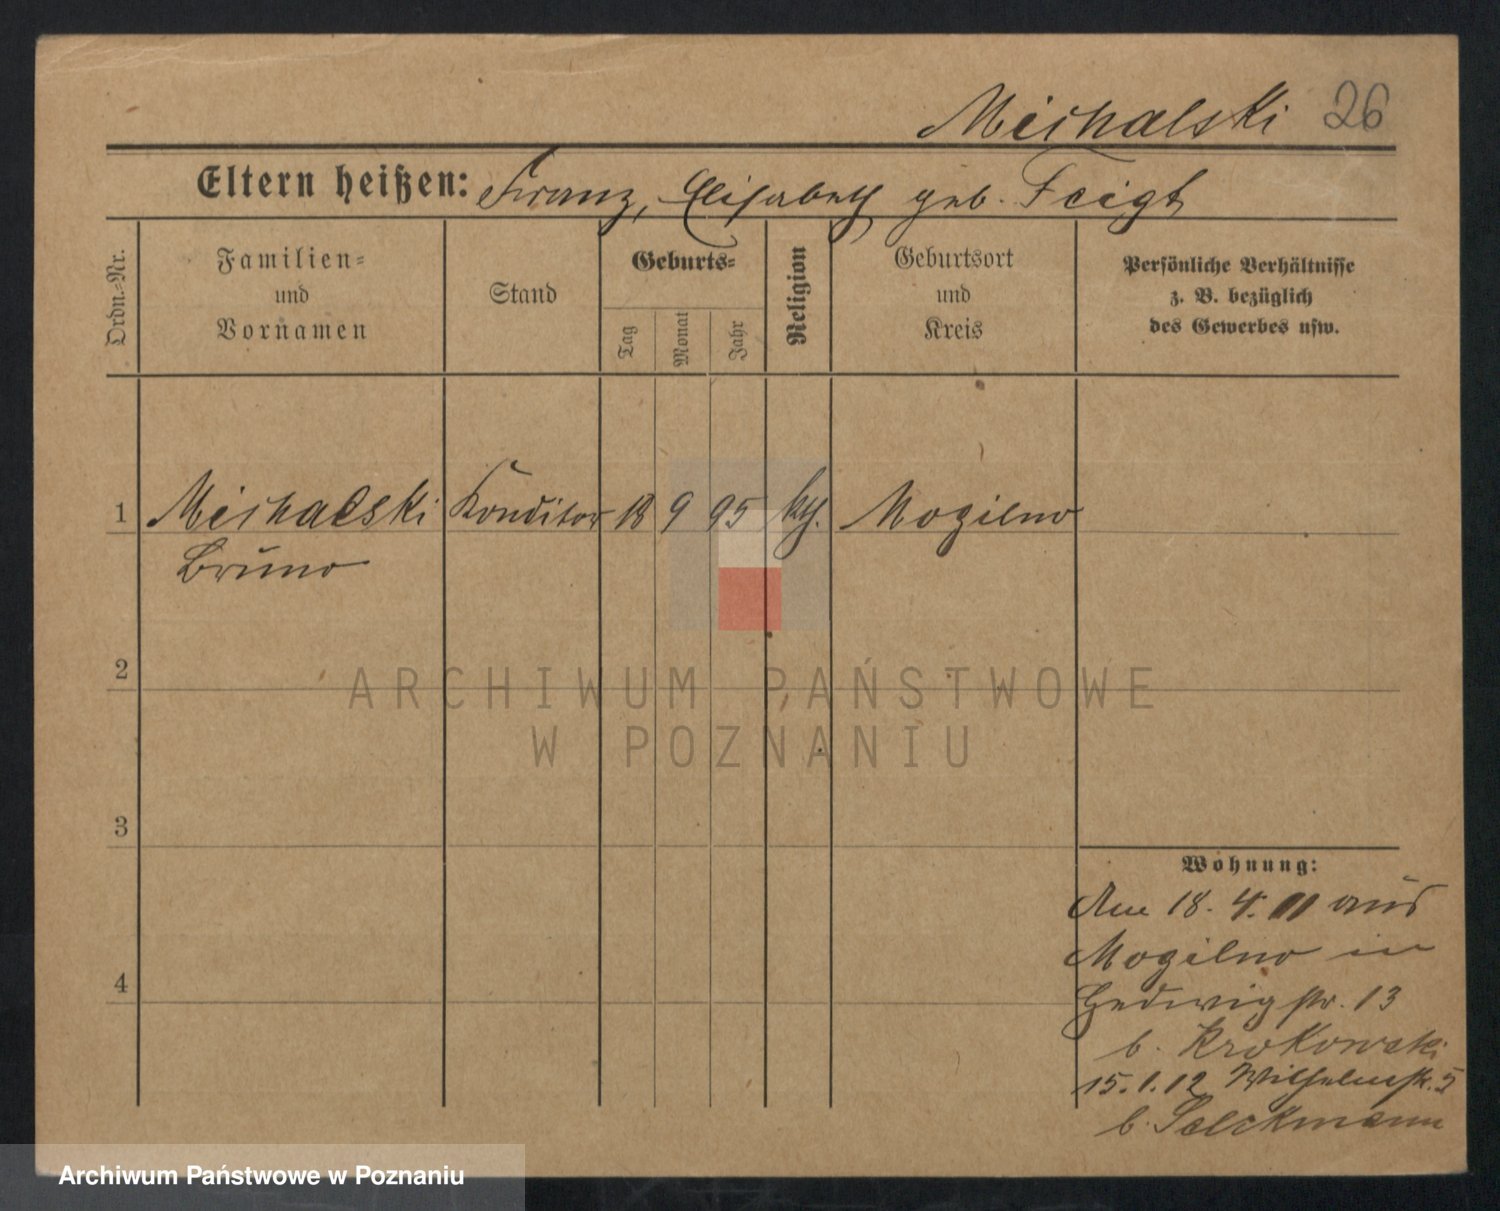 Michalski 26
Eltern heißen: Franz, Elisabeth geb. Feigt
Ordn.-Nr.
Familien-
und
Vornamen
Stand
Geburts-
Tag
Monat
Jahr
Religion
Geburtsort
und
Kreis
Persönliche Verhältnisse
z. B. bezüglich
des Gewerbes usw.
1 Michalski Konditor 18 9 95 kth. Mogilno
Bruno
2
ARCHIWUM PAŃSTWOWE
W POZNANIU
3
Wohnung:
Am 18. 4. 11 aus
Mogilno in
4
Hedwigstr. 13
b. Krokowski
15.1.12 Wilhelmstr. 5
b. Selckmann
Archiwum Państwowe w Poznaniu